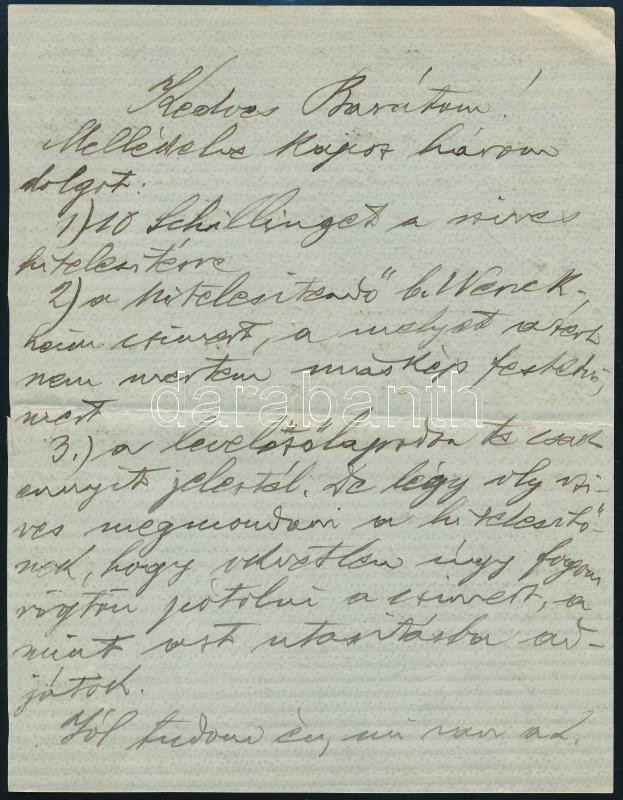 Kedves Barátom!
Mellékelve kapsz három
dolgot:
1) 10 Schillinget a szives
hitelesitésre
2) a hitelesitendő b. Wenck-
heim czimert, a melyet azért
nem mertem máskép festetni,
mert
3.) a levelezőlapodon te csak
ennyit jeleztél. De légy oly szi-
ves megmondani a hitelesitő-
nek, hogy okvetlen úgy fogom
rögtön pótolni a czimert, a
mint azt utasitásba ad-
játok.
Jól tudom én, mi van a
darabanth